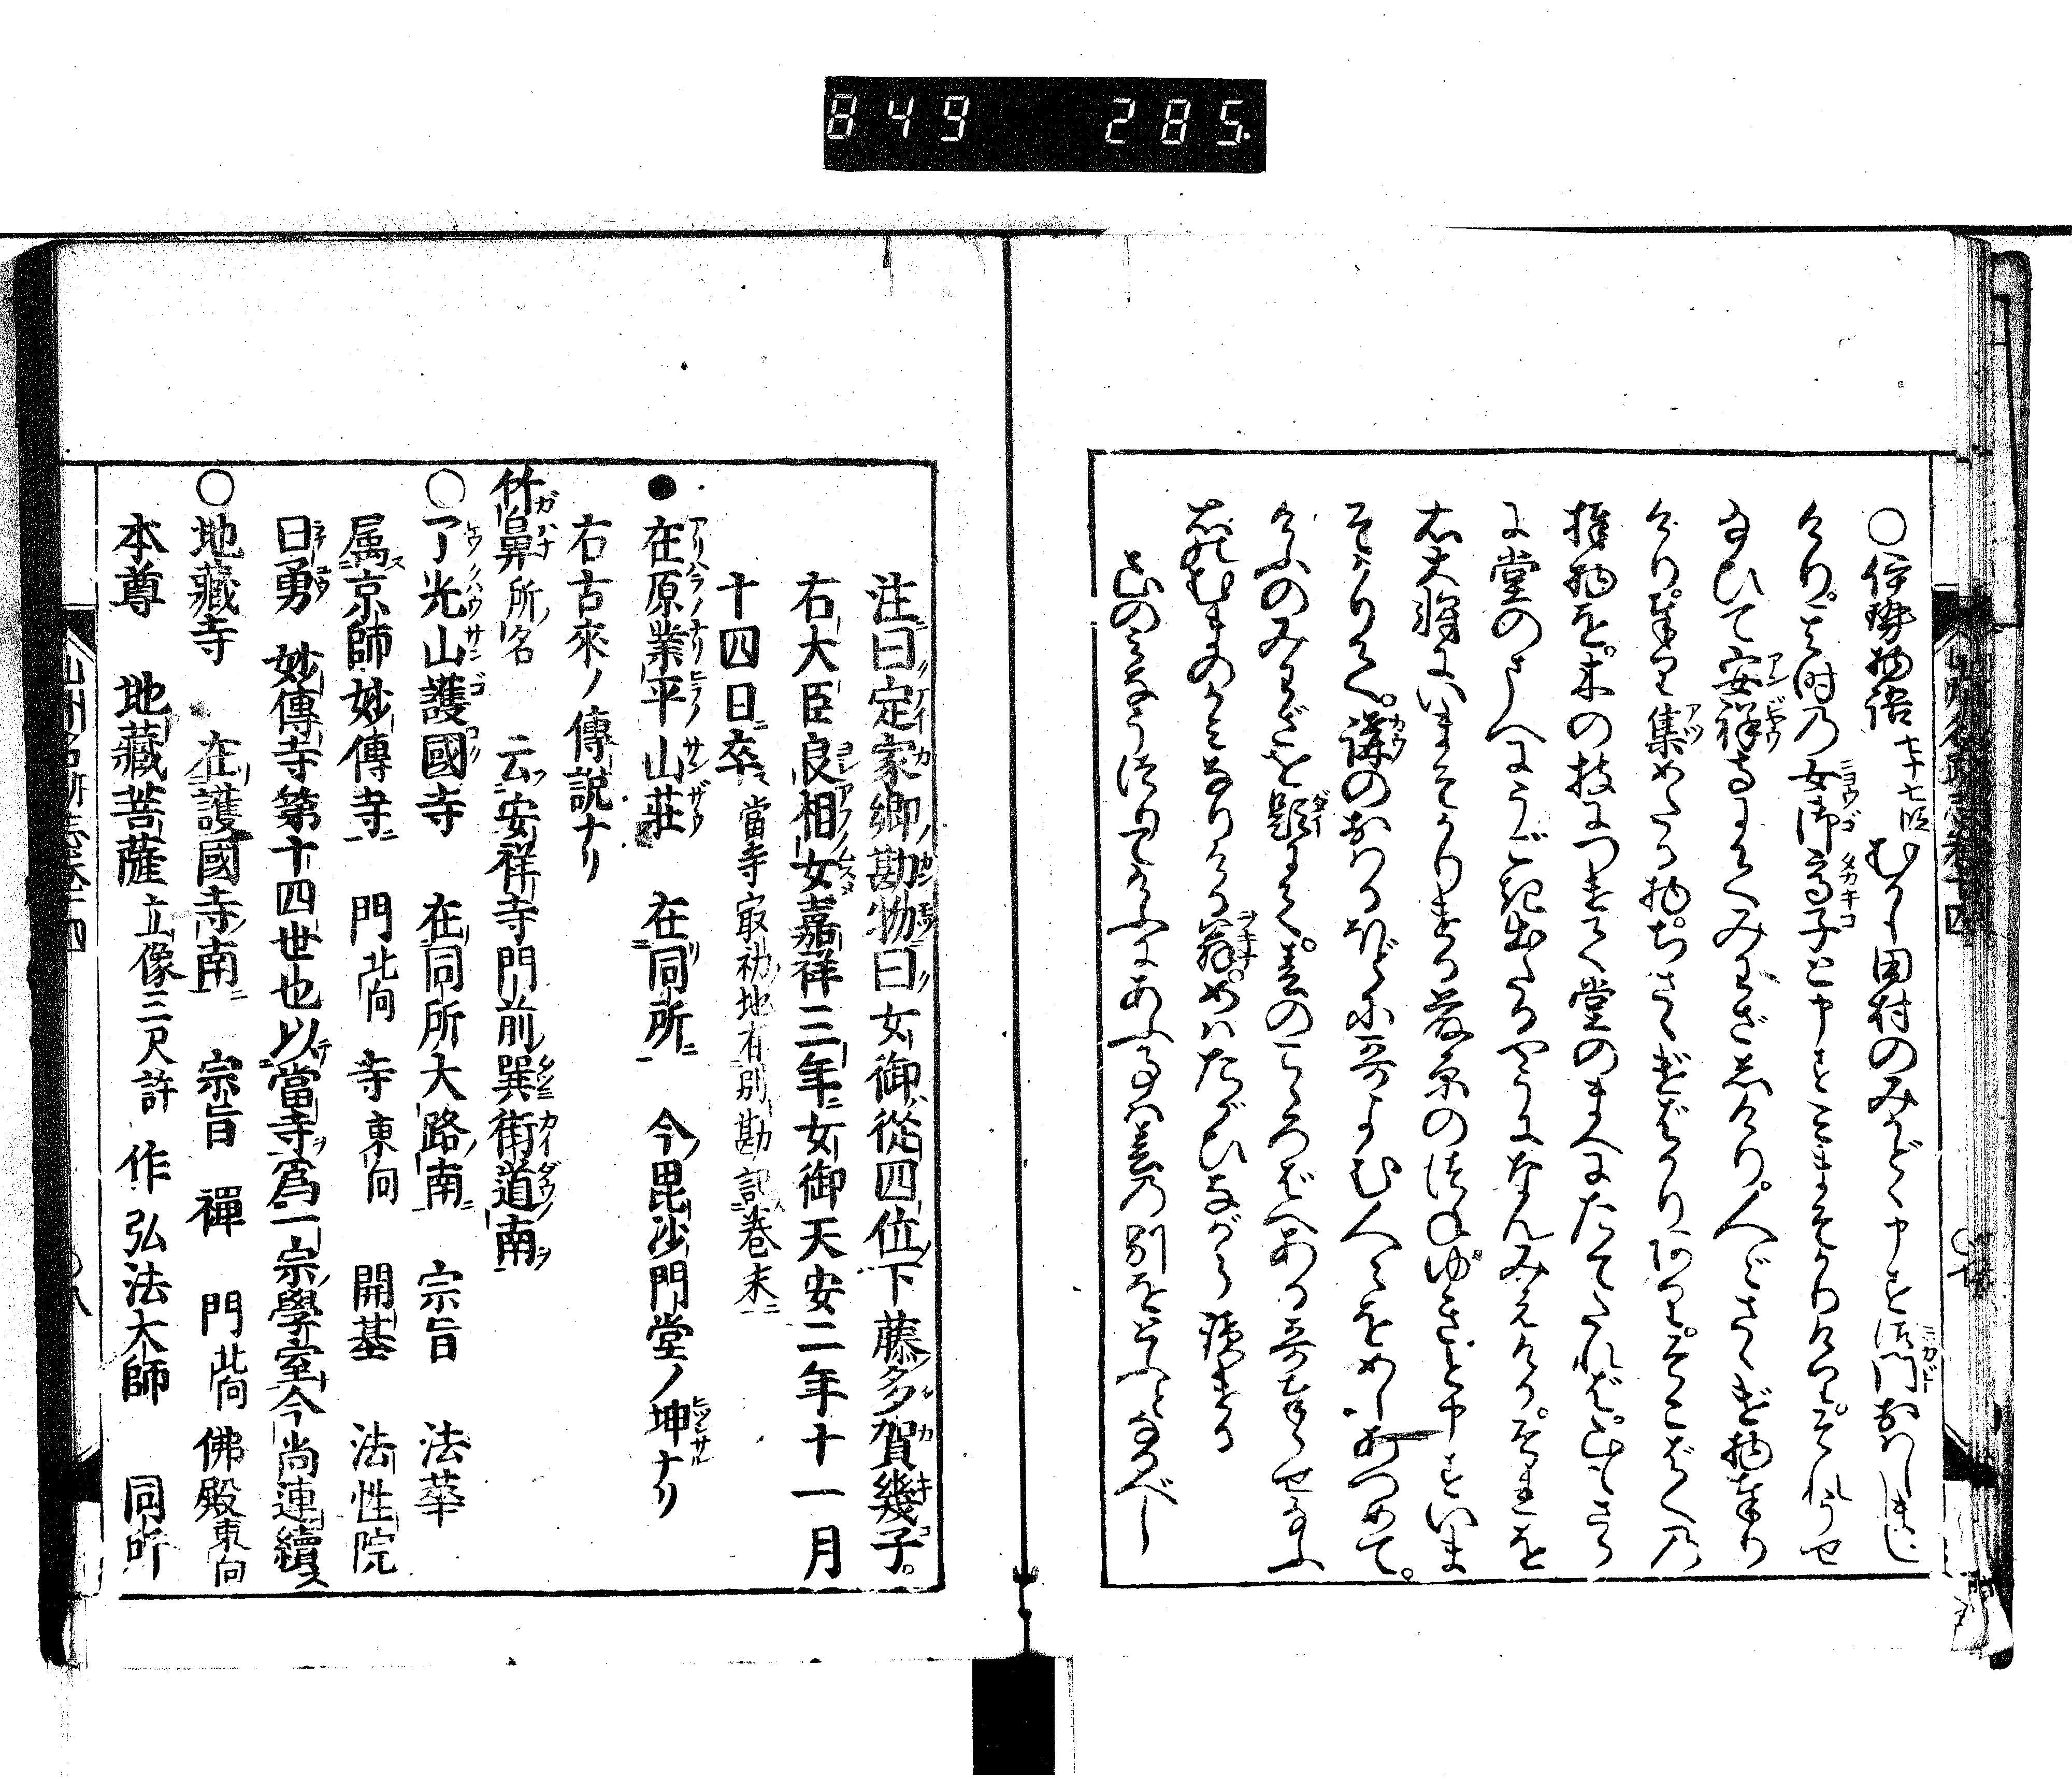 849 285.
○伊勢物語 七十七段 むかし田村のみかどゝ申す御門おはしまし
けり。其時の女御高子と申すことまそかりけり。それうせ
給ひて安祥寺にてみわざしけり。人〻さゝげ物奉り
けり。奉り集めたる物ちさゝげばかりあり。そこばくの
捧物を。木の枝につけて堂のまへにたてたれば。山もさら
に堂のまへにうごき出たるやうになんみえける。それを
右大将にいまそかりける藤原の常ゆきと申すいま
そかりて。講のおはるほどに哥よむ人〻をめしあつめて。
けふのみわざを題にて。春のこゝろばへある哥奉らせ給ふ
右のむまのかみなりける翁。めはたがひながら讀ける
山のみなうつりてけふにあふ事は春の別をとふとなるべし
注曰定家卿勘物曰女御從四位下藤多賀幾子。
右大臣良相女嘉祥三年女御天安二年十一月
十四日卒 當寺最初地有別勘記巻末
●在原業平山莊 在同所 今毘沙門堂ノ坤ナリ
右古來ノ傳説ナリ
竹鼻 所名 云安祥寺門前巽街道南
○了光山護國寺 在同所大路南 宗旨 法華
属京師妙傳寺 門北向 寺東向 開基 法性院
日勇 妙傳寺第十四世也以當寺爲一宗學室今尚連續ス
○地藏寺 在護國寺南 宗旨 禪 門北向 佛殿東向
本尊 地藏菩薩 立像三尺許 作 弘法大師 同所